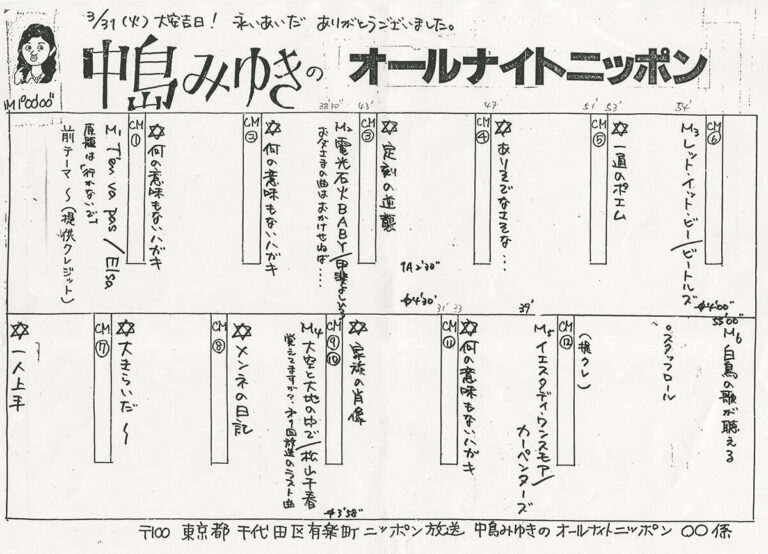 3/31(火)大安吉日! 永いあいだ ありがとうございました。
中島みゆきの オールナイトニッポン
"M1°00'00"
38'30"
43'
49'
51'
53'
54'
前テーマ 〜(提供クレジット)
M1 T'en va pas/Elsa
原題は「行かないで」
CM①
✡何の意味もないハガキ
CM②
✡何の意味もないハガキ
M2 電光石火BABY/甲斐よしひろ
お父さまの曲はおかけせねば‥‥
CM③
✡定刻の逆襲
1A2'30"
♪4'30"
CM④
✡ありそでなさそな‥‥
CM⑤
✡一通のポエム
M3 レット・イット・ビー/ビートルズ
♪4'00"
CM⑥
✡一人上手
CM⑦
✡大きらいだ〜
CM⑧
✡メンネの日記
M4 大空と大地の中で/松山千春
覚えてますか?、オ1回放送のラスト曲
♪3'58"
CM⑨⑩
✡家族の肖像
31'
33
CM⑪
✡何の意味もないハガキ
39'
M5 イエスタデイ・ワンスモア/カーペンターズ
CM⑫
(提クレ)
。スタッフロール
55'00"
M6 白鳥の歌が聴える
〒100 東京都 千代田区有楽町 ニッポン放送 中島みゆきの オールナイトニッポン 〇〇係